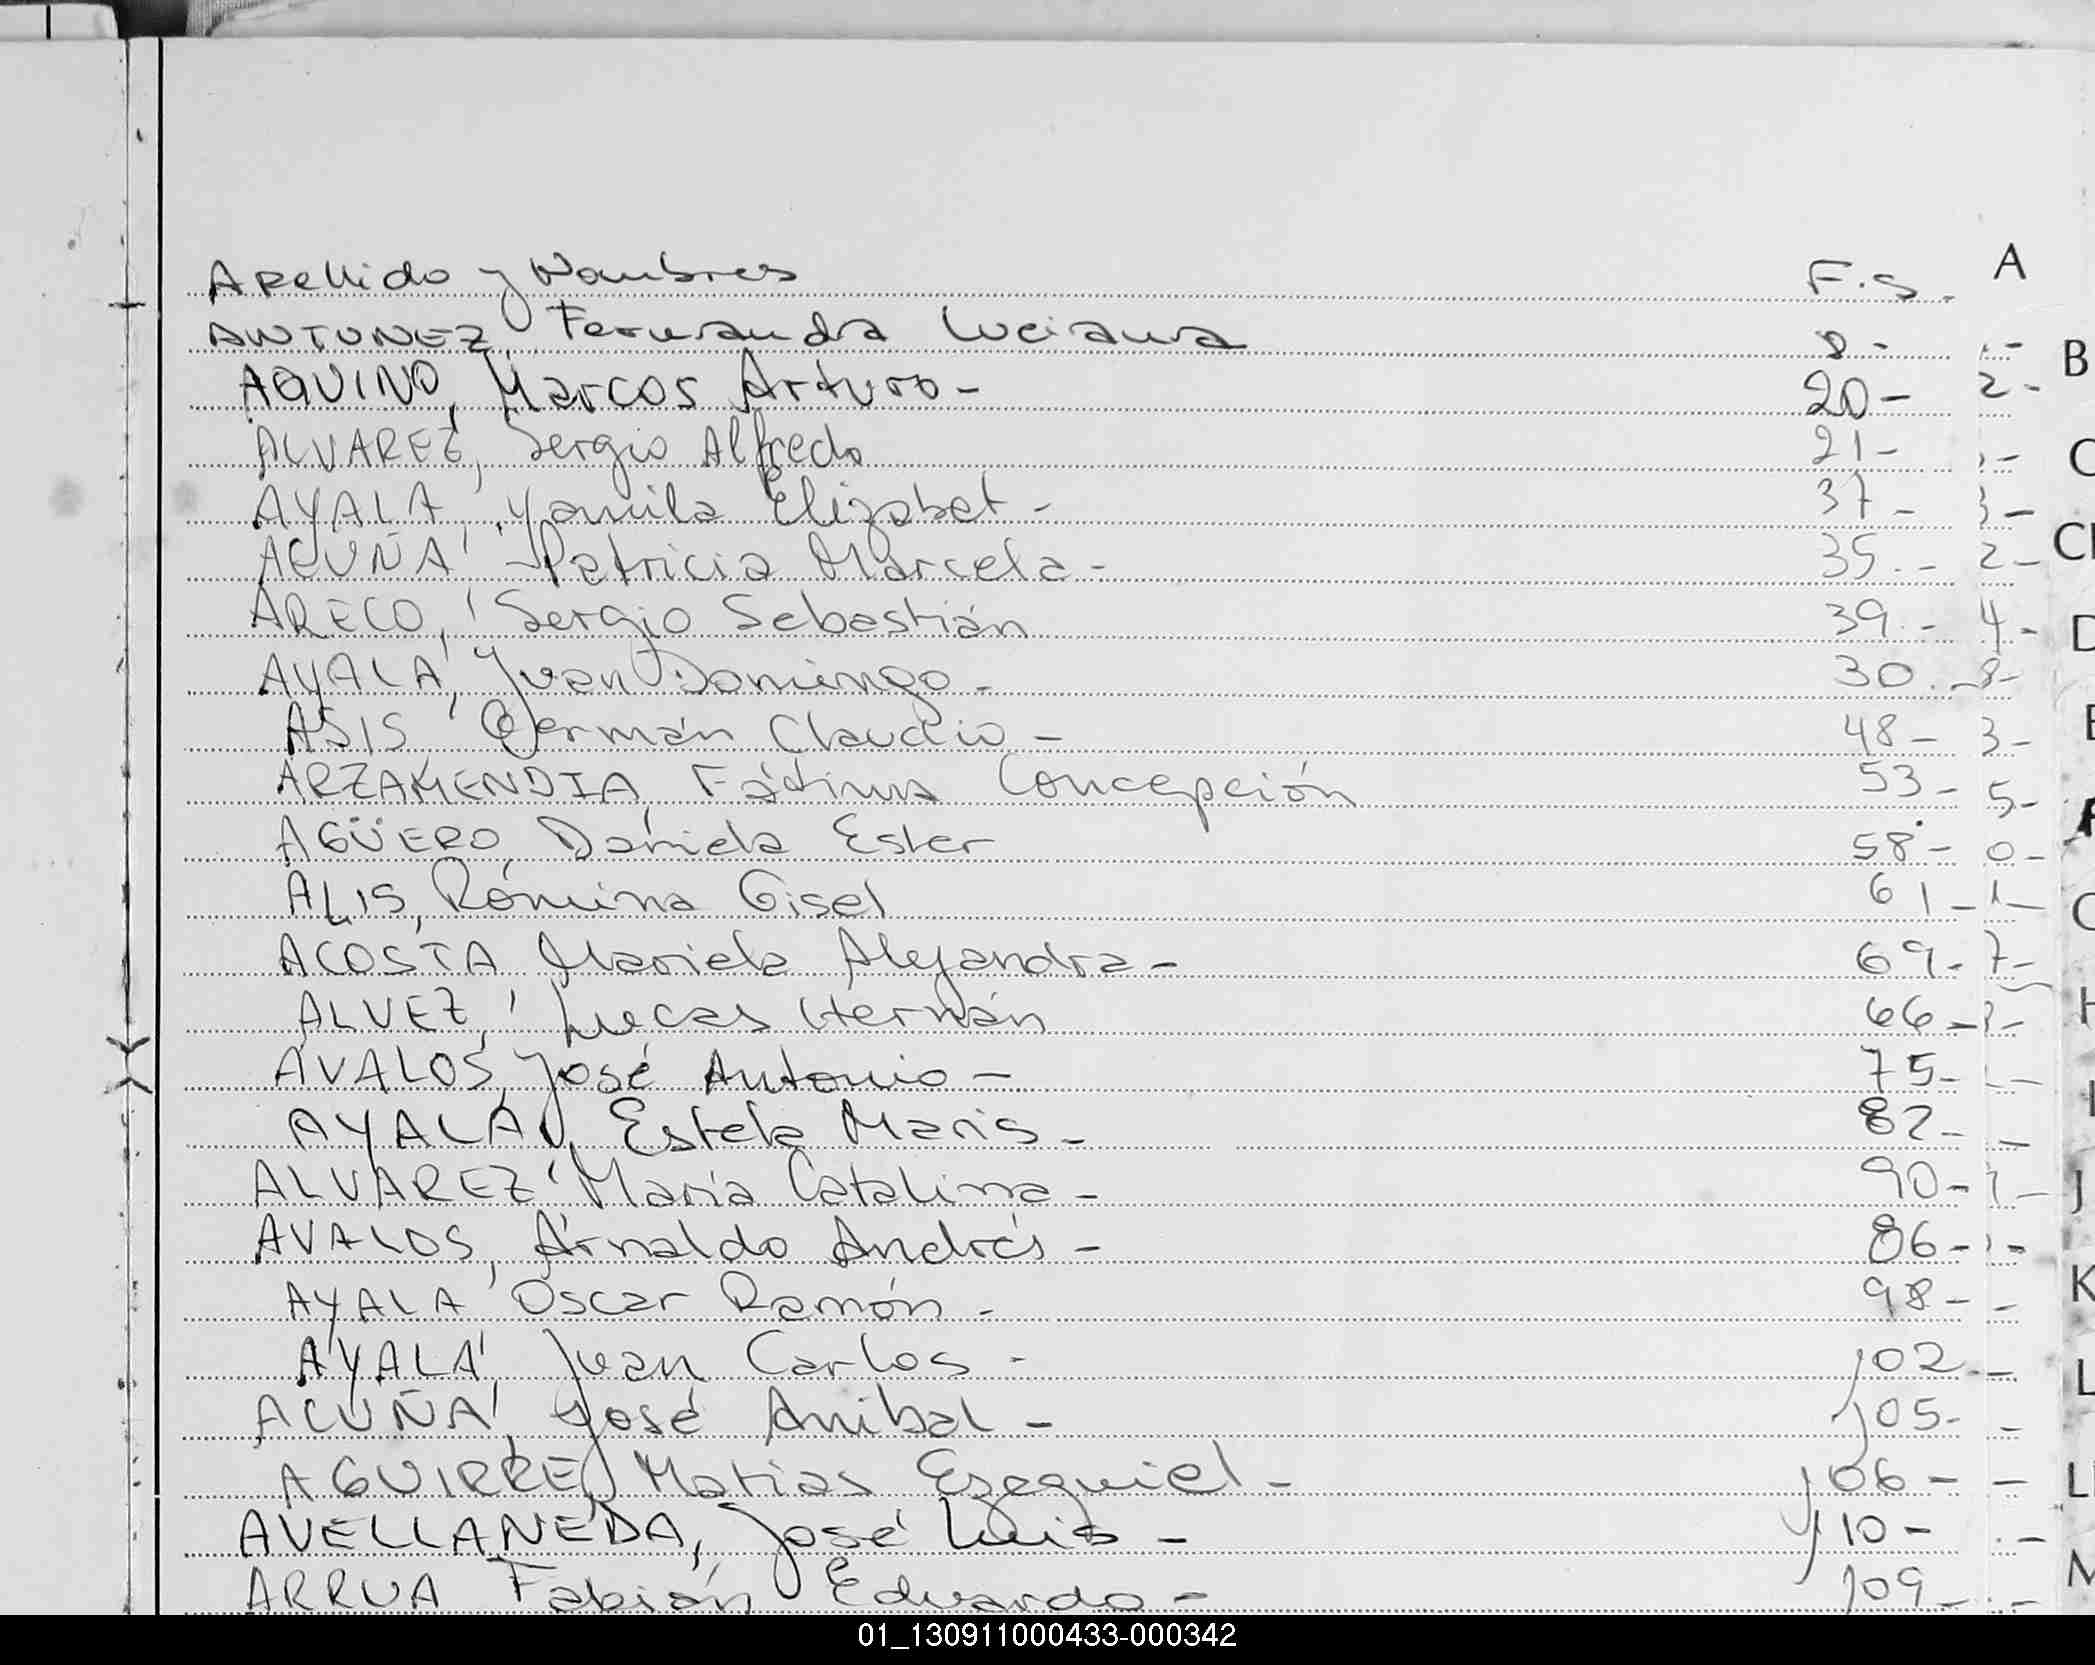 Apellido y Nombres F.S. A
ANTUNEZ, Fernanda Luciana 8 -
AQUINO, Marcos Arturo - 20 - 2 - B
ALVAREZ, Sergio Alfredo 21 - C
AYALA, Yamila Elizabet - 37 - 3 -
ACUÑA, Patricia Marcela - 35 - 2 -
ARECO, Sergio Sebastián 39 - 4 -
AYALA, Juan Domingo - 30 - 8 -
ASIS, Germán Claudio - 48 - 3 -
ARZAMENDIA, Fátima Concepción 53 - 5 -
AGÜERO, Daniela Ester 58 - 0 -
ALIS, Romina Gisel 61 - 1 -
ACOSTA Mariela Alejandra - 69 - 7 -
ALVEZ, Lucas Hernán 66 -
AVALOS, José Antonio - 75 -
AYALA, Estela Maris - 82 -
ALVAREZ María Catalina - 90 - J
AVALOS, Arnaldo Andrés - 86 -
AYALA Oscar Ramón - 98 - K
AYALA, Juan Carlos - 102 - L
ACUÑA, José Anibal - 105 -
AGUIRRE, Matias Ezequiel - 106 -
AVELLANEDA, José Luis - 110 -
ARRUA Fabián Eduardo - 109 -
01_130911000433-000342